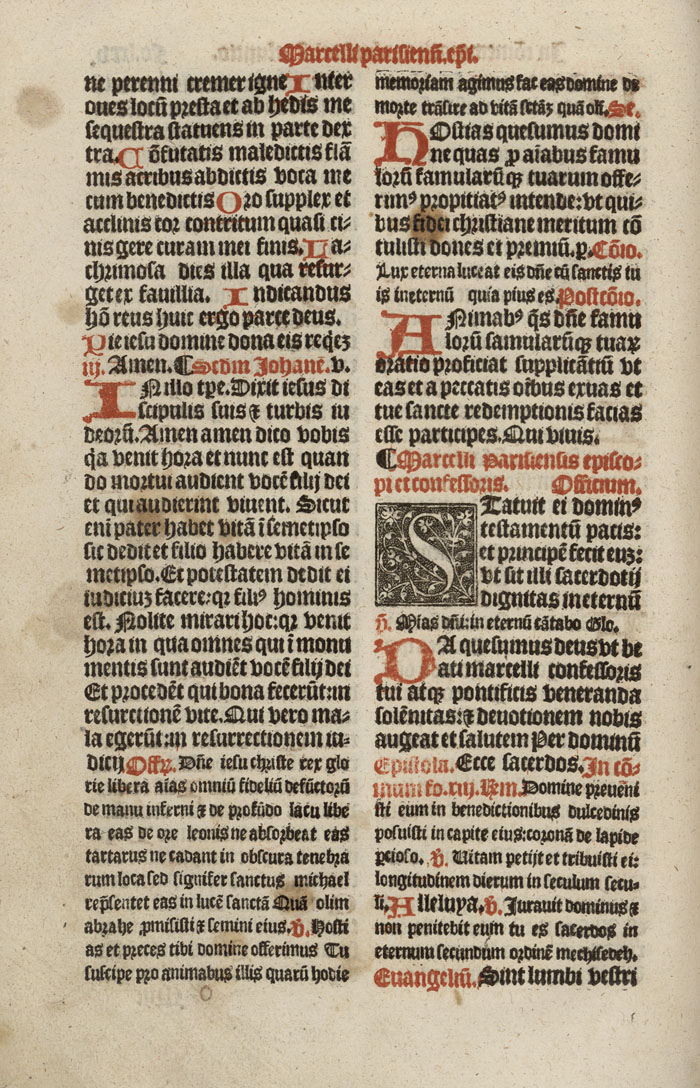 Marcelli parisienſi. epi.
ne perenni cremer igne Inter
oues locū preſta et ab hedis me
ſequeſtra ſtatuens in parte dex
tra. Cōfutatis maledictis flā
mis acribus abdictis voca me
cum benedictis Oro ſupplex et
acclinis cor contritum quaſi ci⸗
nis gere curam mei finis. La⸗
chrimoſa dies illa qua reſur⸗
get ex fauillia. Iudicandus
hō reus huic ergo parce deus.
Pie ieſu domine dona eis reqēz
iij. Amen. ¶ Scđm Johanē. v.
IN illo tp̄e. Dixit ieſus di
ſcipulis ſuis ⁊ turbis iu
deorū. Amen amen dico vobis
q̄a venit hora et nunc eſt quan
do mortui audient vocē filij dei
et qui audierint viuent. Sicut
eni pater habet vitā ī ſemetipſo
ſic dedit et filio habere vitā in ſe
metipſo. Et poteſtatem dedit ei
iudiciuz facere: qꝛ filiꝰ hominis
eſt. Nolite mirari hoc: qꝛ venit
hora in qua omnes qui ī monu
mentis ſunt audiēt vocē filij dei
Et procedēt qui bona fecerūt: in
reſurctionē vite. Qui vero ma⸗
la egerūt: in reſurrectionem iu⸗
dicij Offꝝ. Dn̄e ieſu chriſte rex glo
rie libera aīas omniū fideliū defūctorū
de manu inferni ⁊ de profūdo lacu libe
ra eas de ore leonis ne abſorbeat eas
tartarus ne cadant in obſcura tenebra
rum loca ſed ſignifer ſanctus michael
rep̄ſentet eas in lucē ſanctā Quā olim
abrahe ꝓmiſiſti ⁊ ſemini eius. ℣. Hoſti
as et preces tibi domine offerimus Tu
ſuſcipe pro animabus illis quarū hodie
memoriam agimus fac eas domine de
morte trāſire ad vitā ſctāz quā oli. Se.
HOſtias queſumus domi
ne quas ꝓ aīabus famu
lorū famularūqꝫ tuarum offe⸗
rimꝰ propitiatꝰ intende: vt qui⸗
bus fidei chriſtiane meritum cō
tuliſti dones et premiū. p. Cōio.
Lux eterna luceat eis dn̄e cū ſanctis tu
is in eternū quia pius es. Poſtcōio.
ANimabꝰ q̄s dn̄e famu
lorū famularūqꝫ tuaꝝ
oratio proficiat ſupplicātiū vt
eas et a peccatis oībus exuas et
tue ſancte redemptionis facias
eſſe participes. Qui viuis.
¶ Marcelli pariſienſis epiſco⸗
pi et confeſſoris. Officium.
STatuit ei dominꝰ
teſtamentū pacis:
et principē fecit euz:
vt ſit illi ſacerdotij
dignitas in eternū
p̄. Mias dn̄i: in eternū cātabo Glo.
DA queſumus deus vt be
ati marcelli confeſſoris
tui atqꝫ pontificis veneranda
ſolēnitas: ⁊ deuotionem nobis
augeat et ſalutem Per dominū
Epiſtola. Ecce ſacerdos. In cō⸗
mum fo. xiij. R̄m. Domine preueni
ſti eum in benedictionibus dulcedinis
poſuiſti in capite eius: coronā de lapide
p̄cioſo. ℣. Uitam petijt et tribuiſti ei:
longitudinem dierum in ſeculum ſecu⸗
li. Alleluya. ℣. Jurauit dominus ⁊
non penitebit eum tu es ſacerdos in
eternum ſecundum ordinē mechiſedeh.
Euangeliū. Sint lumbi veſtri